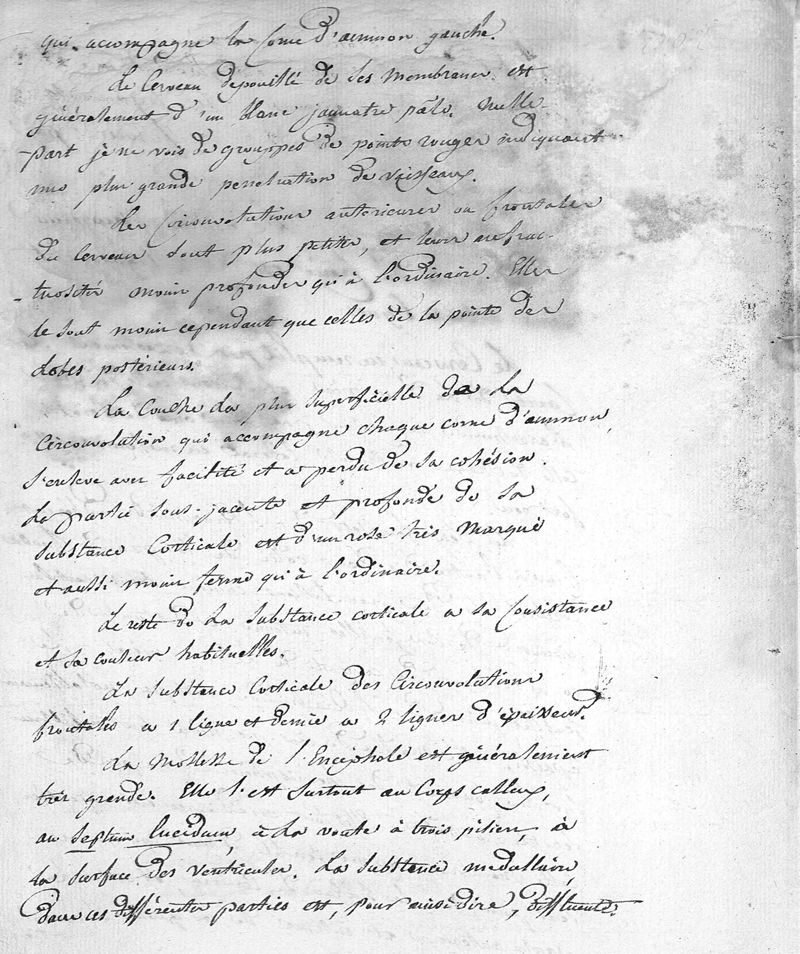 qui accompagne la corne d'ammon gauche.
Le Cerveau dépouillé de ses membranes est
généralement d'un blanc jaunatre pâle. Nulle
part je ne vois de grouppes de points rouges indiquant
une plus grande penetration de Vaisseaux.
Les Circonvolutions antérieures ou frontales
du Cerveau sont plus petites, et leurs anfrac-
tuosités moins profondes qu'à l'ordinaire. Elles
le sont moins cependant que celles de la pointe des
Lobes postérieurs.
La Couche la plus superficielle de la
Circonvolution qui accompagne chaque corne d'ammon,
s'enleve avec facilité et a perdu de sa cohésion.
La partie sous-jacente et profonde de sa
substance Corticale est d'un rose très marqué
et aussi moins ferme qu'à l'ordinaire.
Le reste de la substance corticale a sa Consistance
et sa couleur habituelles.
La substance Corticale des Circonvolutions
frontales a 1 ligne et demie a 2 lignes d'épaisseur.
La Mollesse de l'Encéphale est généralement
très grande. Elle l'est surtout au Corps calleux,
au septum lucidum à la voute à trois piliers, à
la surface des ventricules. La substance medullaire,
dans ces différentes parties est, pour ainsi dire, diffluente.